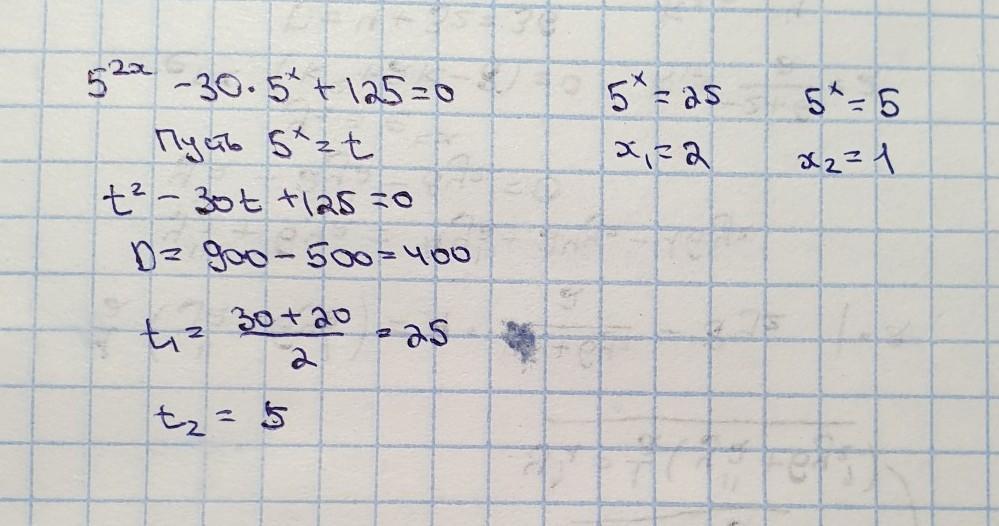 5^{2x} - 30 · 5^x + 125 = 0
Пусть 5^x = t
t² - 30t + 125 = 0
D = 900 - 500 = 400
t₁ = (30 + 20)/2 = 25
t₂ = 5
5^x = 25
x₁ = 2
5^x = 5
x₂ = 1